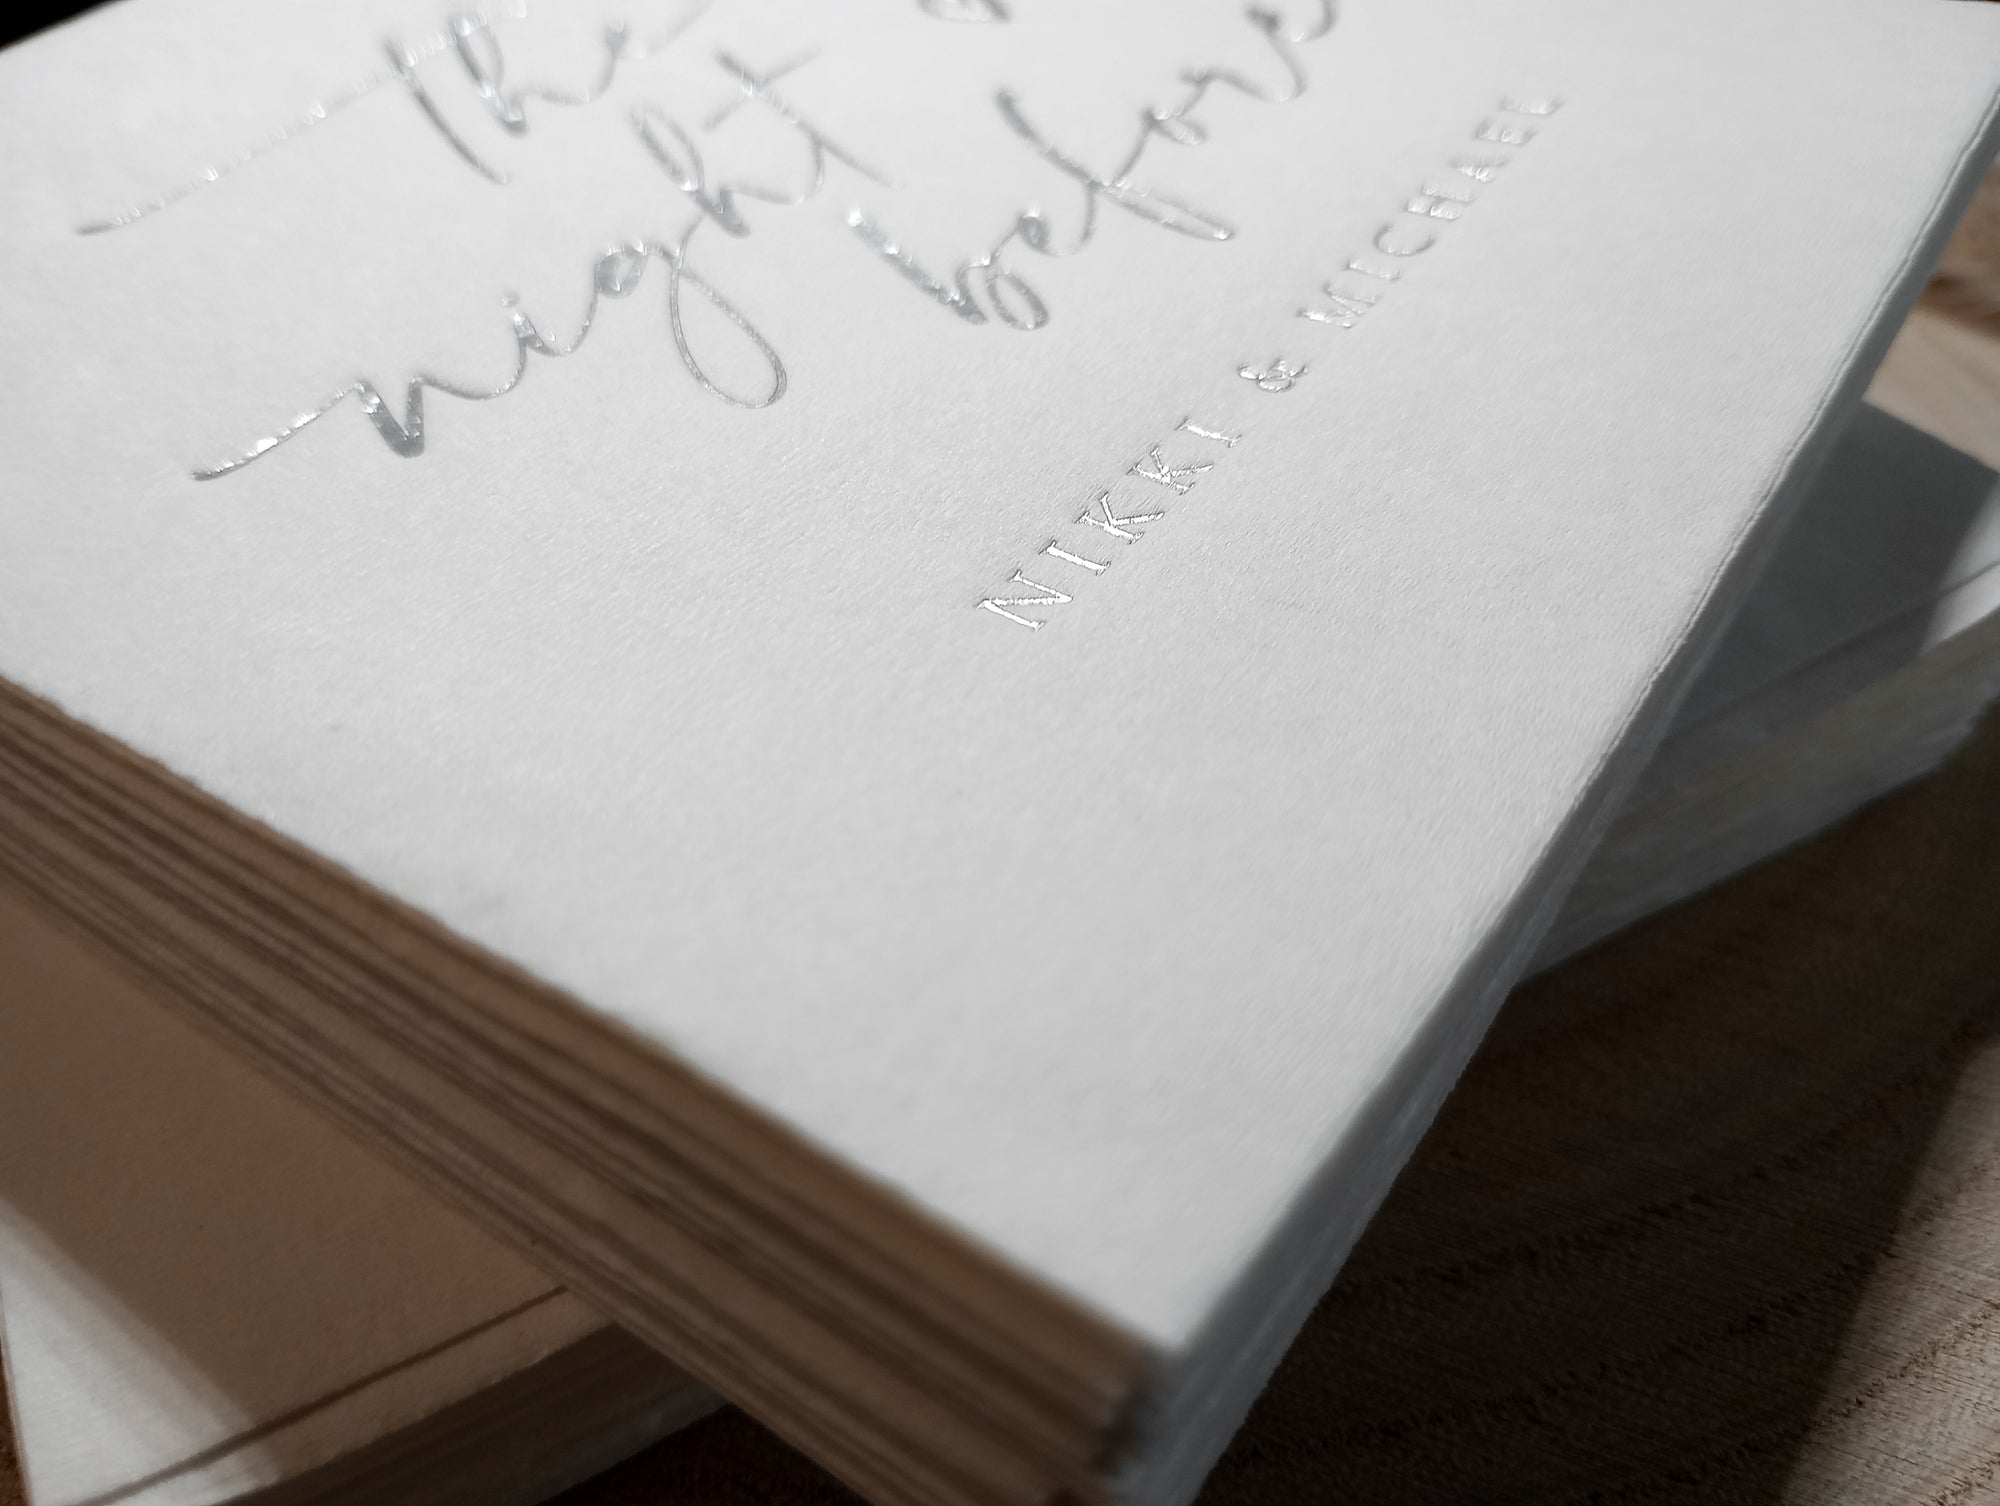 the
night before
NIKKI & MICHAEL